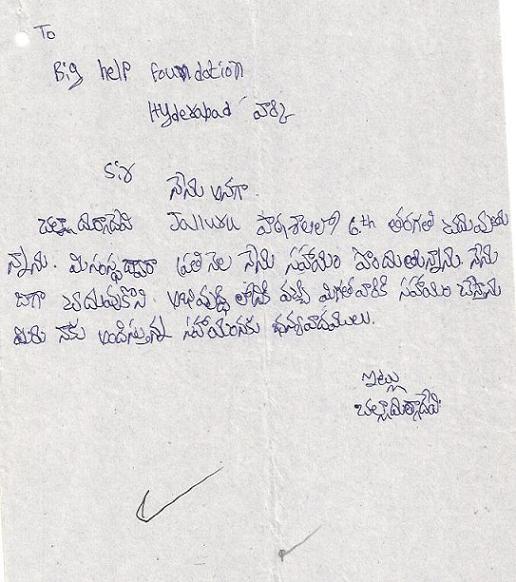 To
Big help foundation
Hyderabad వార్కి
Sir
నేను అనగా.
చల్లా దుర్గాదేవి Javluru పాఠశాలలో 6.th తరగతి చదువుతు
న్నాను. మీసంస్థద్వారా ప్రతినెల నేను సహాయం పొందుతున్నాను. నేను
బాగా చదువుకొని అభివృద్ధి లోకి వచ్చి మిగతవారికి సహాయం చేస్తాను
మీరు నాకు అందిస్తున్న సహాయంనకు ధన్యవాదములు.
ఇట్లు
చల్లాదుర్గాదేవి